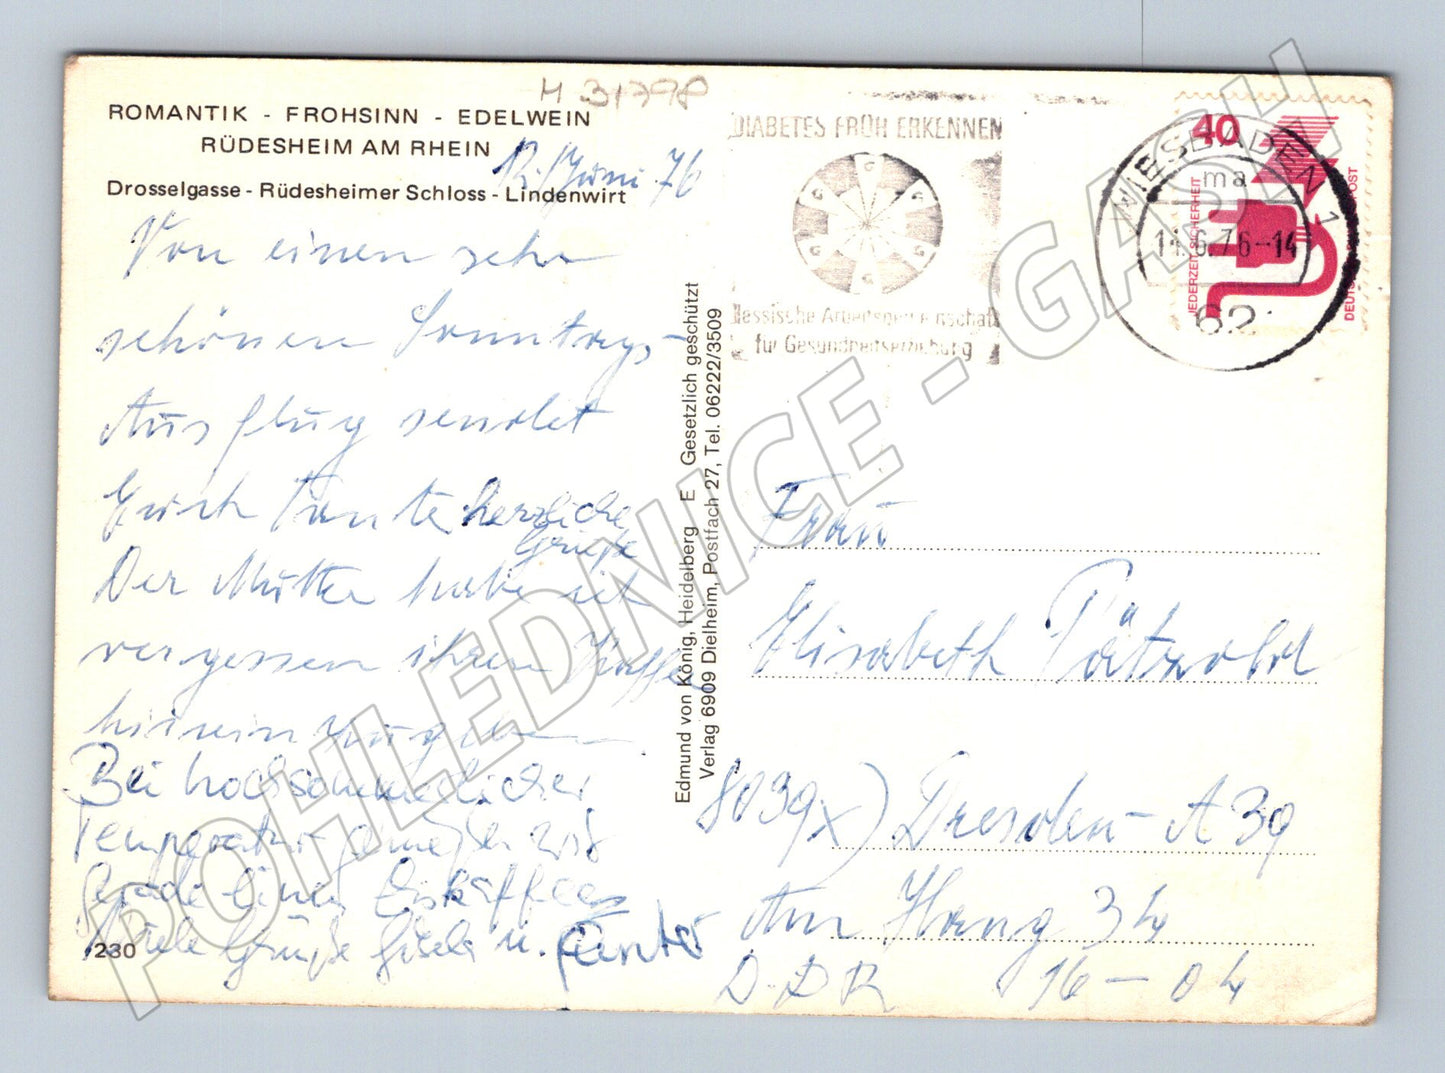 H 31798
ROMANTIK - FROHSINN - EDELWEIN
RÜDESHEIM AM RHEIN
Juni 76
Drosselgasse - Rüdesheimer Schloss - Lindenwirt
Von einem sehr
schönen Sonntags-
Ausflug sendet
Euch Tante herzliche
Grüße
Der Mutter habe
vergessen ihren Kaffee
Bei hochsommerlicher
Temperatur genießen wir
gerade einen Eiskaffee
Viele Grüße Gisela u. Günter
230
Edmund von König, Heidelberg E Gesetzlich geschützt
Verlag 6909 Dielheim, Postfach 27, Tel. 06222/3509
DIABETES FRÜH ERKENNEN
Hessische Arbeitsgemeinschaft
für Gesundheitserziehung
40
JEDERZEIT SICHERHEIT
DEUTSCHE BUNDESPOST
WIESBADEN 1
ma
11.6.76-14
62
Frau
Elisabeth Pätzold
8039x) Dresden-A 39
Am Hang 34
D-DR 16-04
POHLEDNICE - GASH